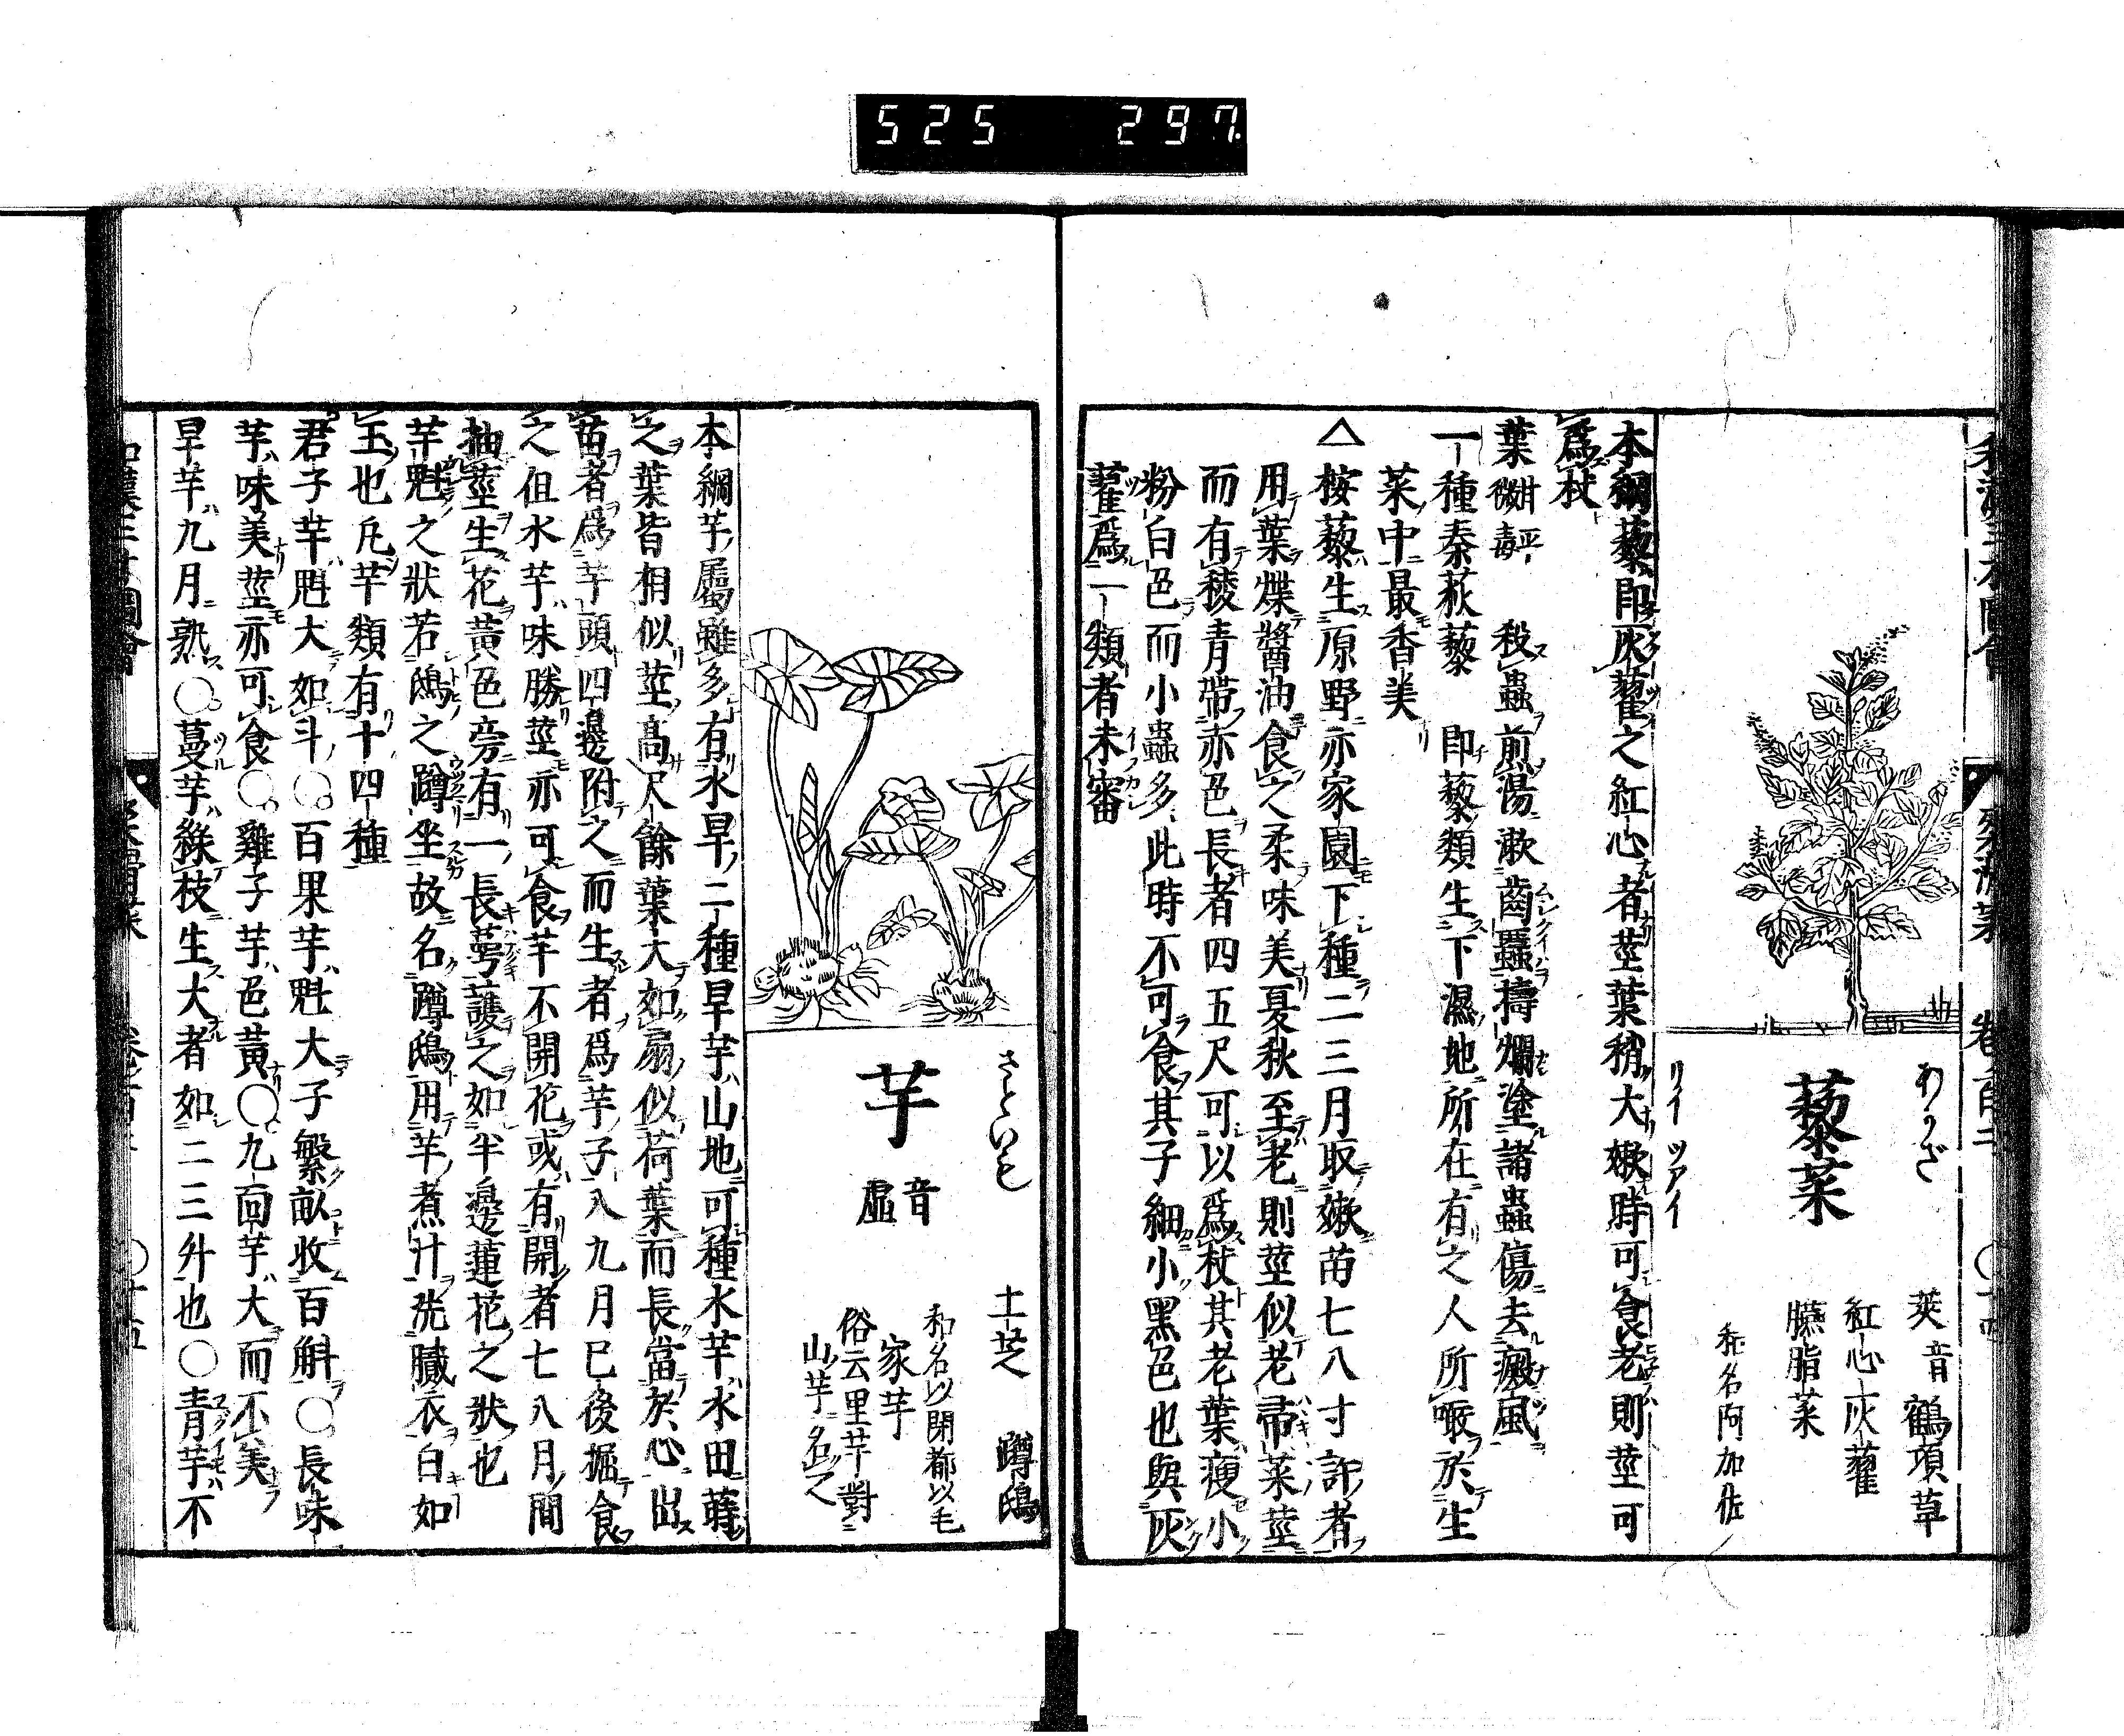 525 297.
和漢三才圖會 柔滑菜 卷百二 ○十四
あかざ
藜菜
リイ ツアイ
萊音 鶴頂草
紅心灰藋
臙脂菜
和名阿加佐
本綱藜即灰藋之紅心者莖葉稍大嫩時可食老則莖可
爲杖
葉甘平微毒 殺蟲煎湯漱齒䘌擣爛塗諸蟲傷去癜風
一種秦荻藜 即藜類生下濕地所在有之人所啖於生
菜中最香美
△桉藜生原野亦家園下種二三月取嫩苗七八寸許者
用葉煠醬油食之柔味美夏秋至老則莖似老帚菜莖
而有稜青帶赤色長者四五尺可以爲杖其老葉瘦小
粉白色而小蟲多此時不可食其子細小黑色也與灰
藋爲一類者未審
さといも
芋
音虛
土芝 蹲鴟
和名以閉都以毛
家芋
俗云里芋對
山芋名之
本綱芋屬雖多有水旱二種旱芋山地可種水芋水田蒔
之葉皆相似莖高尺餘葉大如扇似荷葉而長當於心出
苗者爲芋頭四邊附之而生者爲芋子八九月已後掘食
之但水芋味勝莖亦可食芋不開花或有開者七八月間
抽莖生花黃色旁有一長萼護之如半邊蓮花之狀也
芋魁之狀若鴟之蹲坐故名蹲鴟用芋煮汁洗膩衣白如
玉也凡芋類有十四種
君子芋魁大如斗○百果芋魁大子繁畝收百斛○長味
芋味美莖亦可食○雞子芋色黃○九面芋大而不美
旱芋九月熟○蔓芋緣枝生大者如二三升也○青芋不
和漢三才圖會 柔滑菜 卷百二 ○十五